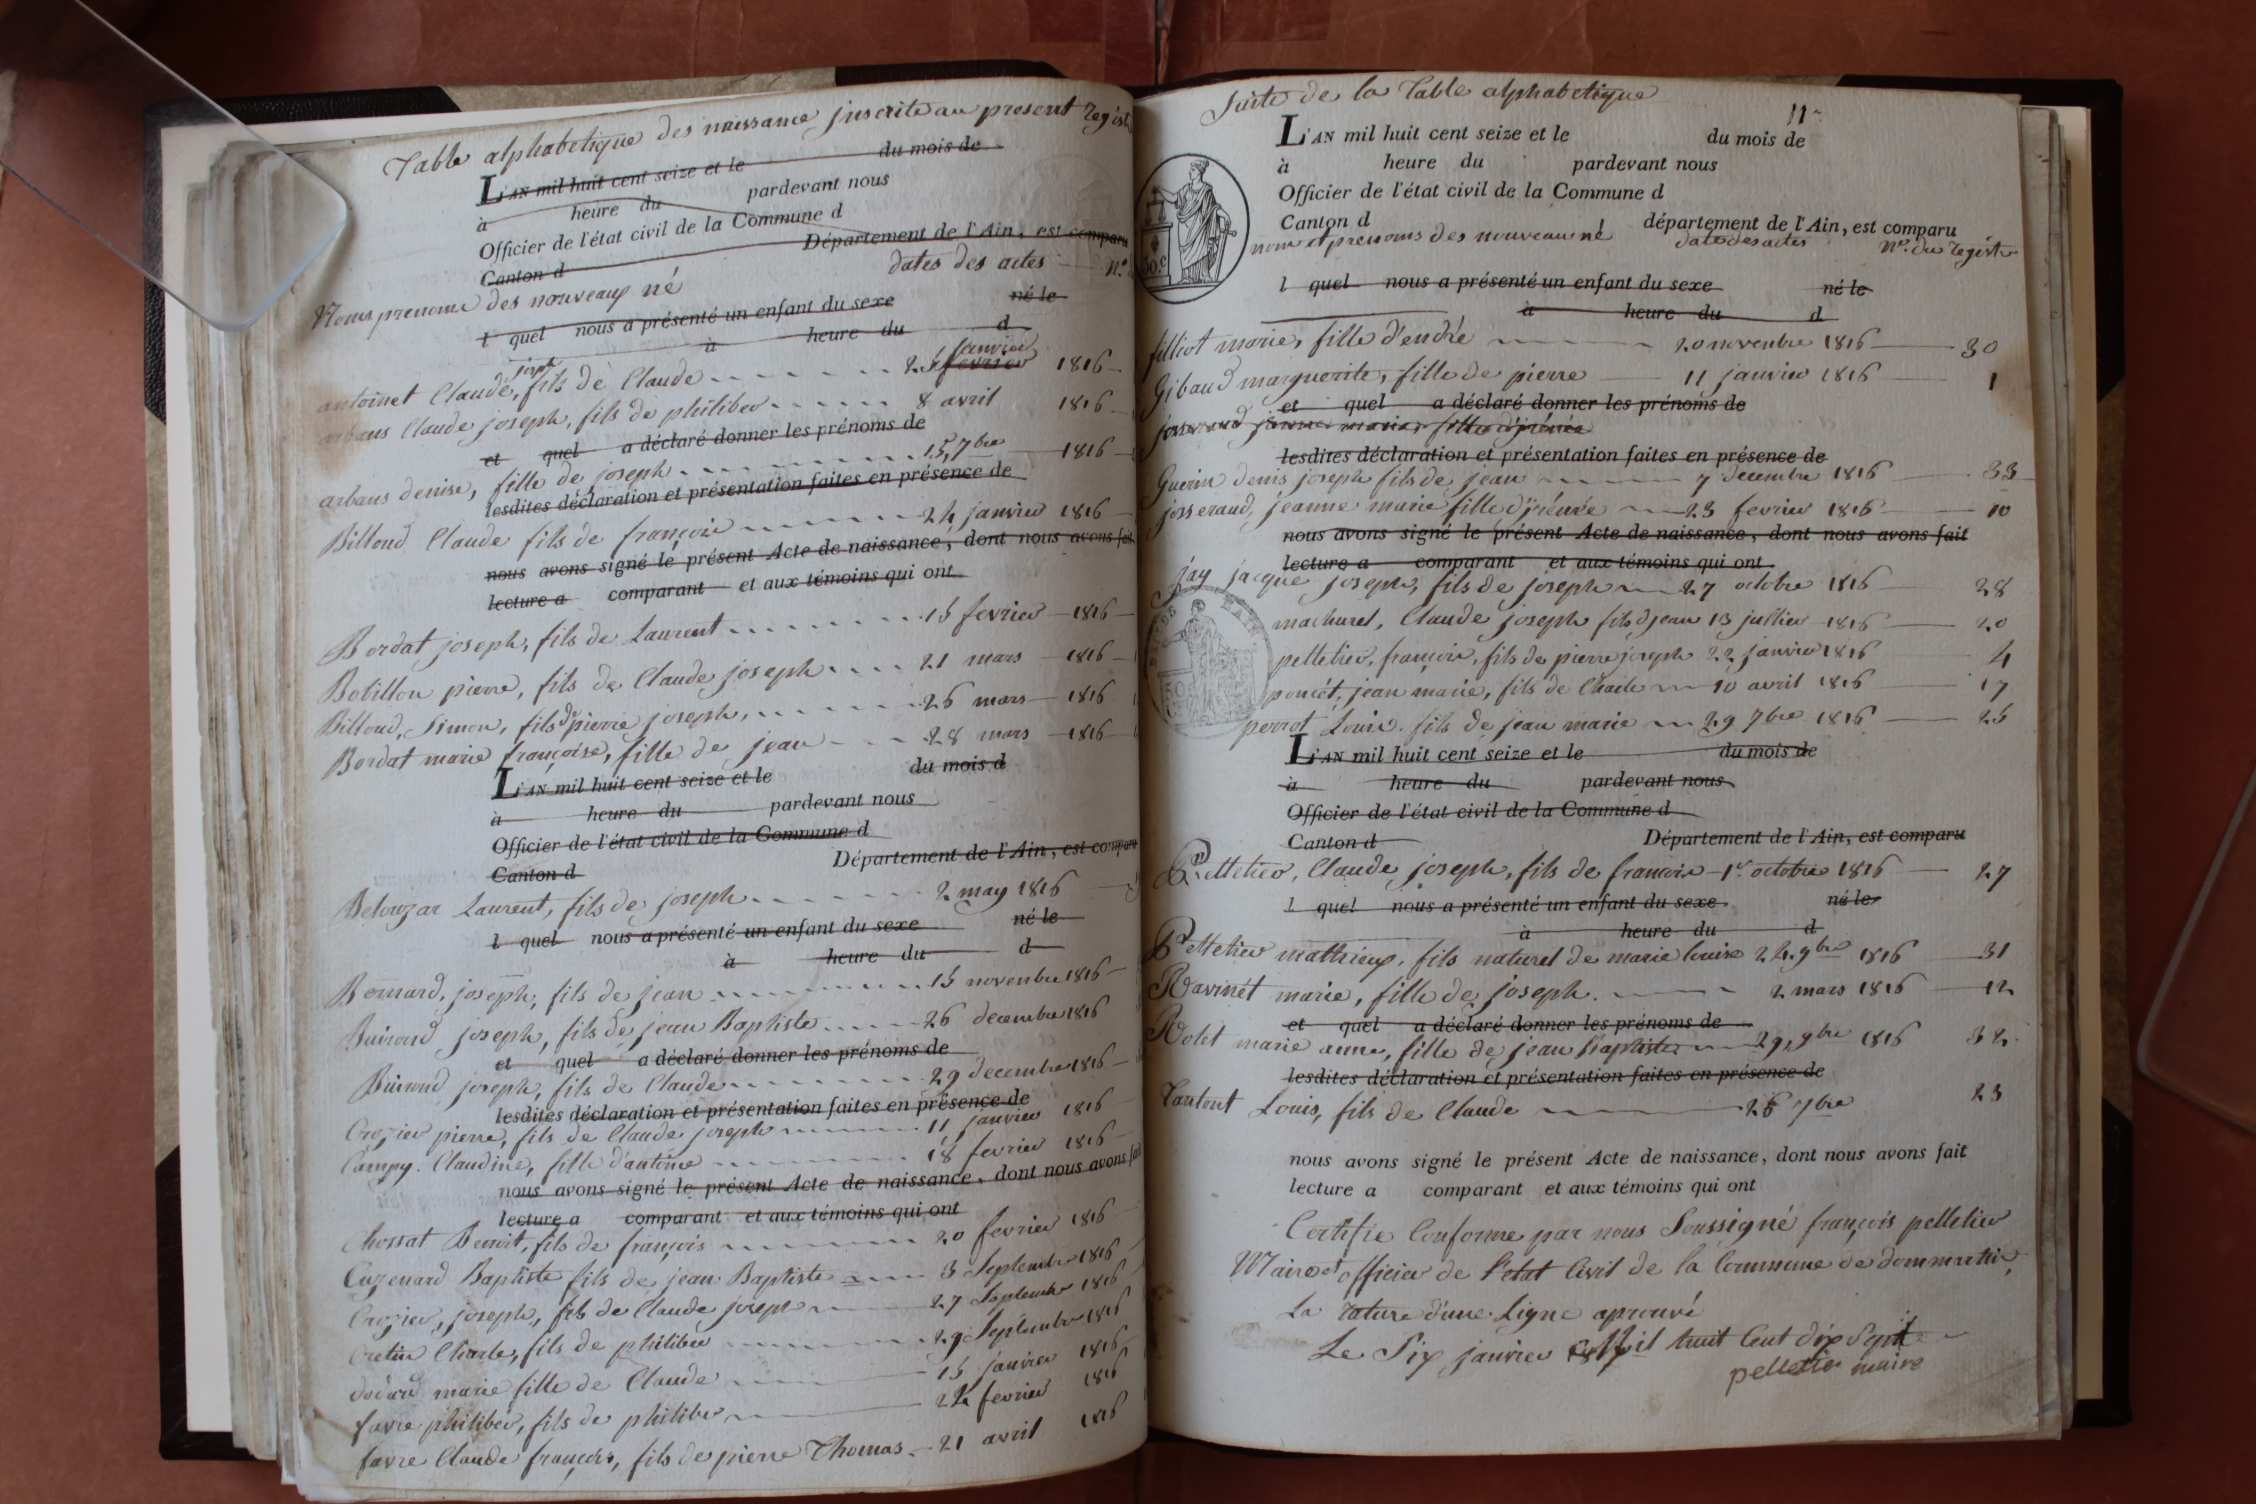 Table alphabetique des naissance jnscrite au present Regist
L'AN mil huit cent seize et le du mois de
à heure du pardevant nous
Officier de l'état civil de la Commune d
Canton d Département de l'Ain, est comparu
Noms prenoms des nouveaux né dates des actes N.º
l quel nous a présenté un enfant du sexe né le
à heure du d
janvier
antoinet Claude, fils de Claude 25 fevrier 1816
arbans Claude joseph, fils de philiber 8 avril 1816
et quel a déclaré donner les prénoms de
arbans denise, fille de joseph 15, 7bre 1816
lesdites déclaration et présentation faites en présence de
Billoud Claude fils de françois 24 janvier 1816
nous avons signé le présent Acte de naissance, dont nous avons fait
lecture a comparant et aux témoins qui ont
Bordat joseph, fils de Laurent 15 fevrier 1816
Botillon pierre, fils de Claude joseph 21 mars 1816
Billoud, Simon, fils de pierre joseph, 26 mars 1816
Bordat marie françoise, fille de jean 28 mars 1816
L'AN mil huit cent seize et le du mois d
à heure du pardevant nous
Officier de l'état civil de la Commune d
Canton d Département de l'Ain, est comparu
Belouzar Laurent, fils de joseph 2 may 1816
l quel nous a présenté un enfant du sexe né le
à heure du d
Bernard, joseph, fils de jean 15 novenbre 1816
Buiroud joseph, fils de jean Baptiste 26 decembre 1816
et quel a déclaré donner les prénoms de
Buiroud joseph, fils de Claude 29 decembre 1816
lesdites déclaration et présentation faites en présence de
Crozier pierre, fils de Claude joseph 11 janvier 1816
Campy. Claudine, fille d'antoine 18 fevrier 1816
nous avons signé le présent Acte de naissance, dont nous avons fait
lecture a comparant et aux témoins qui ont
Chossat Benoit, fils de françois 20 fevrier 1816
Cuzenard Baptiste fils de jean Baptiste 3 Septembre 1816
Crozier, joseph, fils de Claude joseph 27 Septembre 1816
Cretin Charle, fils de philiber 29 Septembre 1816
dodard marie fille de Claude 15 janvier 1816
favre philiber, fils de philiber 24 fevrier 1816
favre Claude françois, fils de pierre Thomas 21 avril 1816
Suite de la Table alphabetique
11
L'AN mil huit cent seize et le du mois de
à heure du pardevant nous
Officier de l'état civil de la Commune d
Canton d département de l'Ain, est comparu
nom et prenoms des nouveau né date des actes N.º du Registre
l quel nous a présenté un enfant du sexe né le
à heure du d
filliot marie, fille d'endré 20 novenbre 1816 30
Gibaud marguerite, fille de pierre 11 janvier 1816 1
et quel a déclaré donner les prénoms de
josseraud jeanne marie, fille d'jrénée
lesdites déclaration et présentation faites en présence de
Guerin denis joseph fils de jean 7 decembre 1816 33
josseraud, jeanne marie fille d'jrénée 23 fevrier 1816 10
nous avons signé le présent Acte de naissance, dont nous avons fait
lecture a comparant et aux témoins qui ont
jay jacque joseph, fils de joseph 27 octobre 1816 28
machuret, Claude joseph fils d jean 13 jullier 1816 20
pelletier, françois, fils de pierre joseph 22 janvier 1816 4
poncét, jean marie, fils de Charle 10 avril 1816 17
perrot Louis. fils de jean marie 29 7bre 1816 25
L'AN mil huit cent seize et le du mois de
à heure du pardevant nous
Officier de l'état civil de la Commune d
Canton d Département de l'Ain, est comparu
Pelletier, Claude joseph, fils de francois 1er octobre 1816 27
l quel nous a présenté un enfant du sexe né le
à heure du d
Pelletier mathieux, fils naturel de marie louise 24 9bre 1816 31
Ravinet marie, fille de joseph 2 mars 1816 12
et quel a déclaré donner les prénoms de
Rolet marie anne, fille de jean Baptiste 29, 9bre 1816 32
lesdites déclaration et présentation faites en présence de
Tantont Louis, fils de Claude 26 7bre 23
nous avons signé le présent Acte de naissance, dont nous avons fait
lecture a comparant et aux témoins qui ont
Certifie Conforme par nous Soussigné françois pelletier
Maire et officier de l'etat Civil de la Commune de dommartin,
La rature d'une Ligne aprouvé
Le Six janvier Mil huit Cent dix Sept
pelletier maire